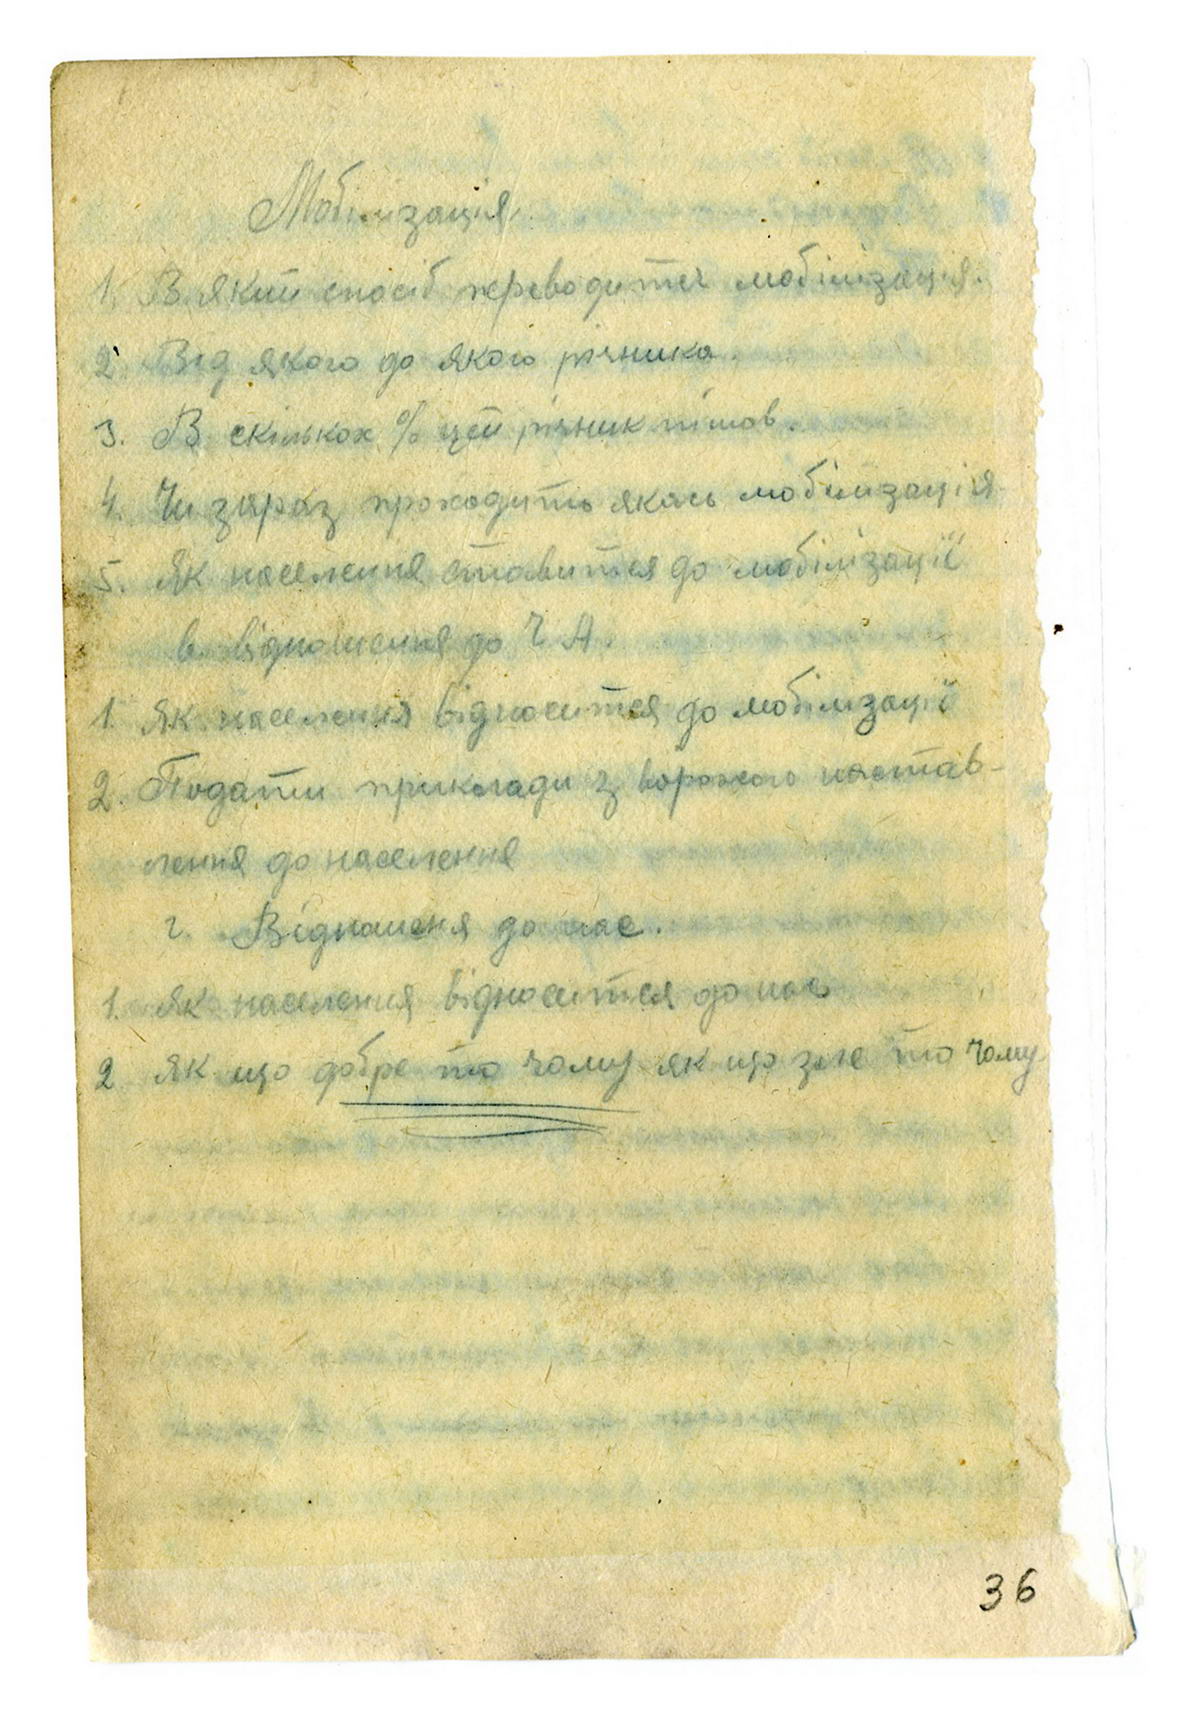 Мобілізація.
1. В який спосіб переводитсі мобілізація.
2. Від якого до якого річника.
3. В скількох % цей річник пішов.
4. Чи зараз проходить якась мобілізація
5. Як населення ставится до мобілізації
в відношення до Ч А.
1. Як населення відноситея до мобілізації
2. Подати приклади з ворожого настав-
лення до населення
г. Відношеня до нас.
1. Як населення відноситея до нас
2 Як що добре то чому як що зле то чому
36